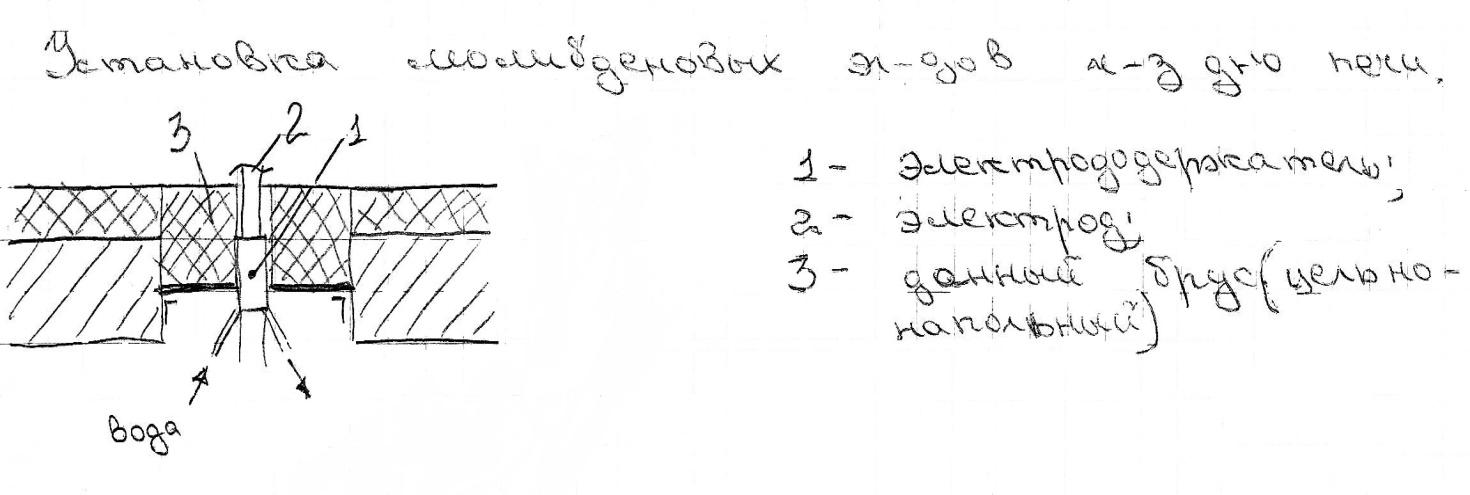 Установка молибденовых эл-дов ч-з дно печи.
3 2 1
1- электрододержатель;
2- электрод;
3- данный брус(цельно-
напольный)
вода